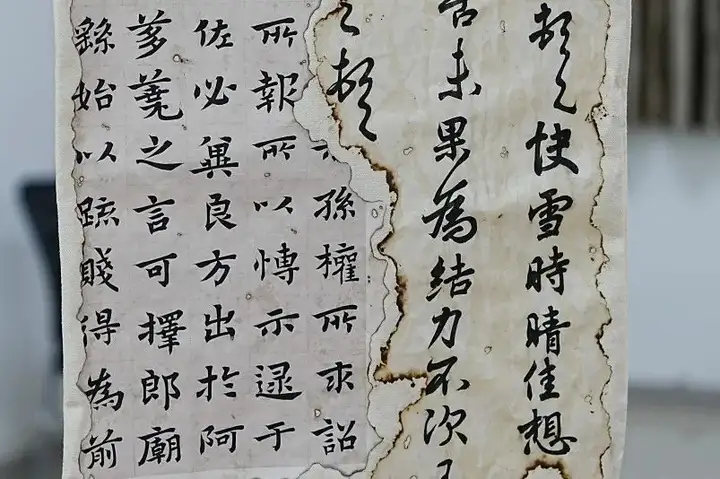 頓首快雪時晴佳想
未果為結力不次王
頓首
示孫權所求詔
所報所以愽示逮于
佐必冀良方出於阿
芻蕘之言可擇郎廟
繇始以疏賤得為前